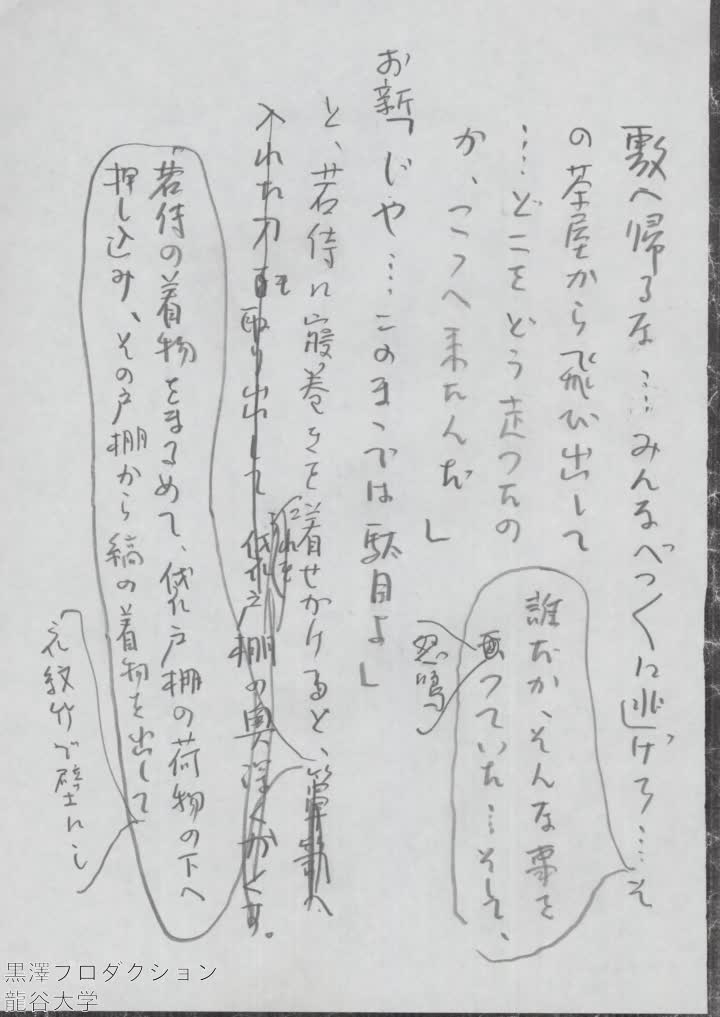 敷へ帰るな……みんなべつべつに逃げろ……そ
の茶屋から飛び出して
……どこをどう走ったの
か、こゝへ来たんだ」
誰だか、そんな事を
って いた……そして、
怒鳴っ
お新「じゃ……このまゝでは駄目よ」
と、若侍に寝巻きを着せかけると、箪笥へ
これを
入れた刀を取り出して袋戸棚の奥深くかくす。
「若侍の着物をまるめて、袋戸棚の荷物の下へ
押し込み、その戸棚から縞の着物を出して
衣紋竹で壁にし
黒澤プロダクション
龍谷大学